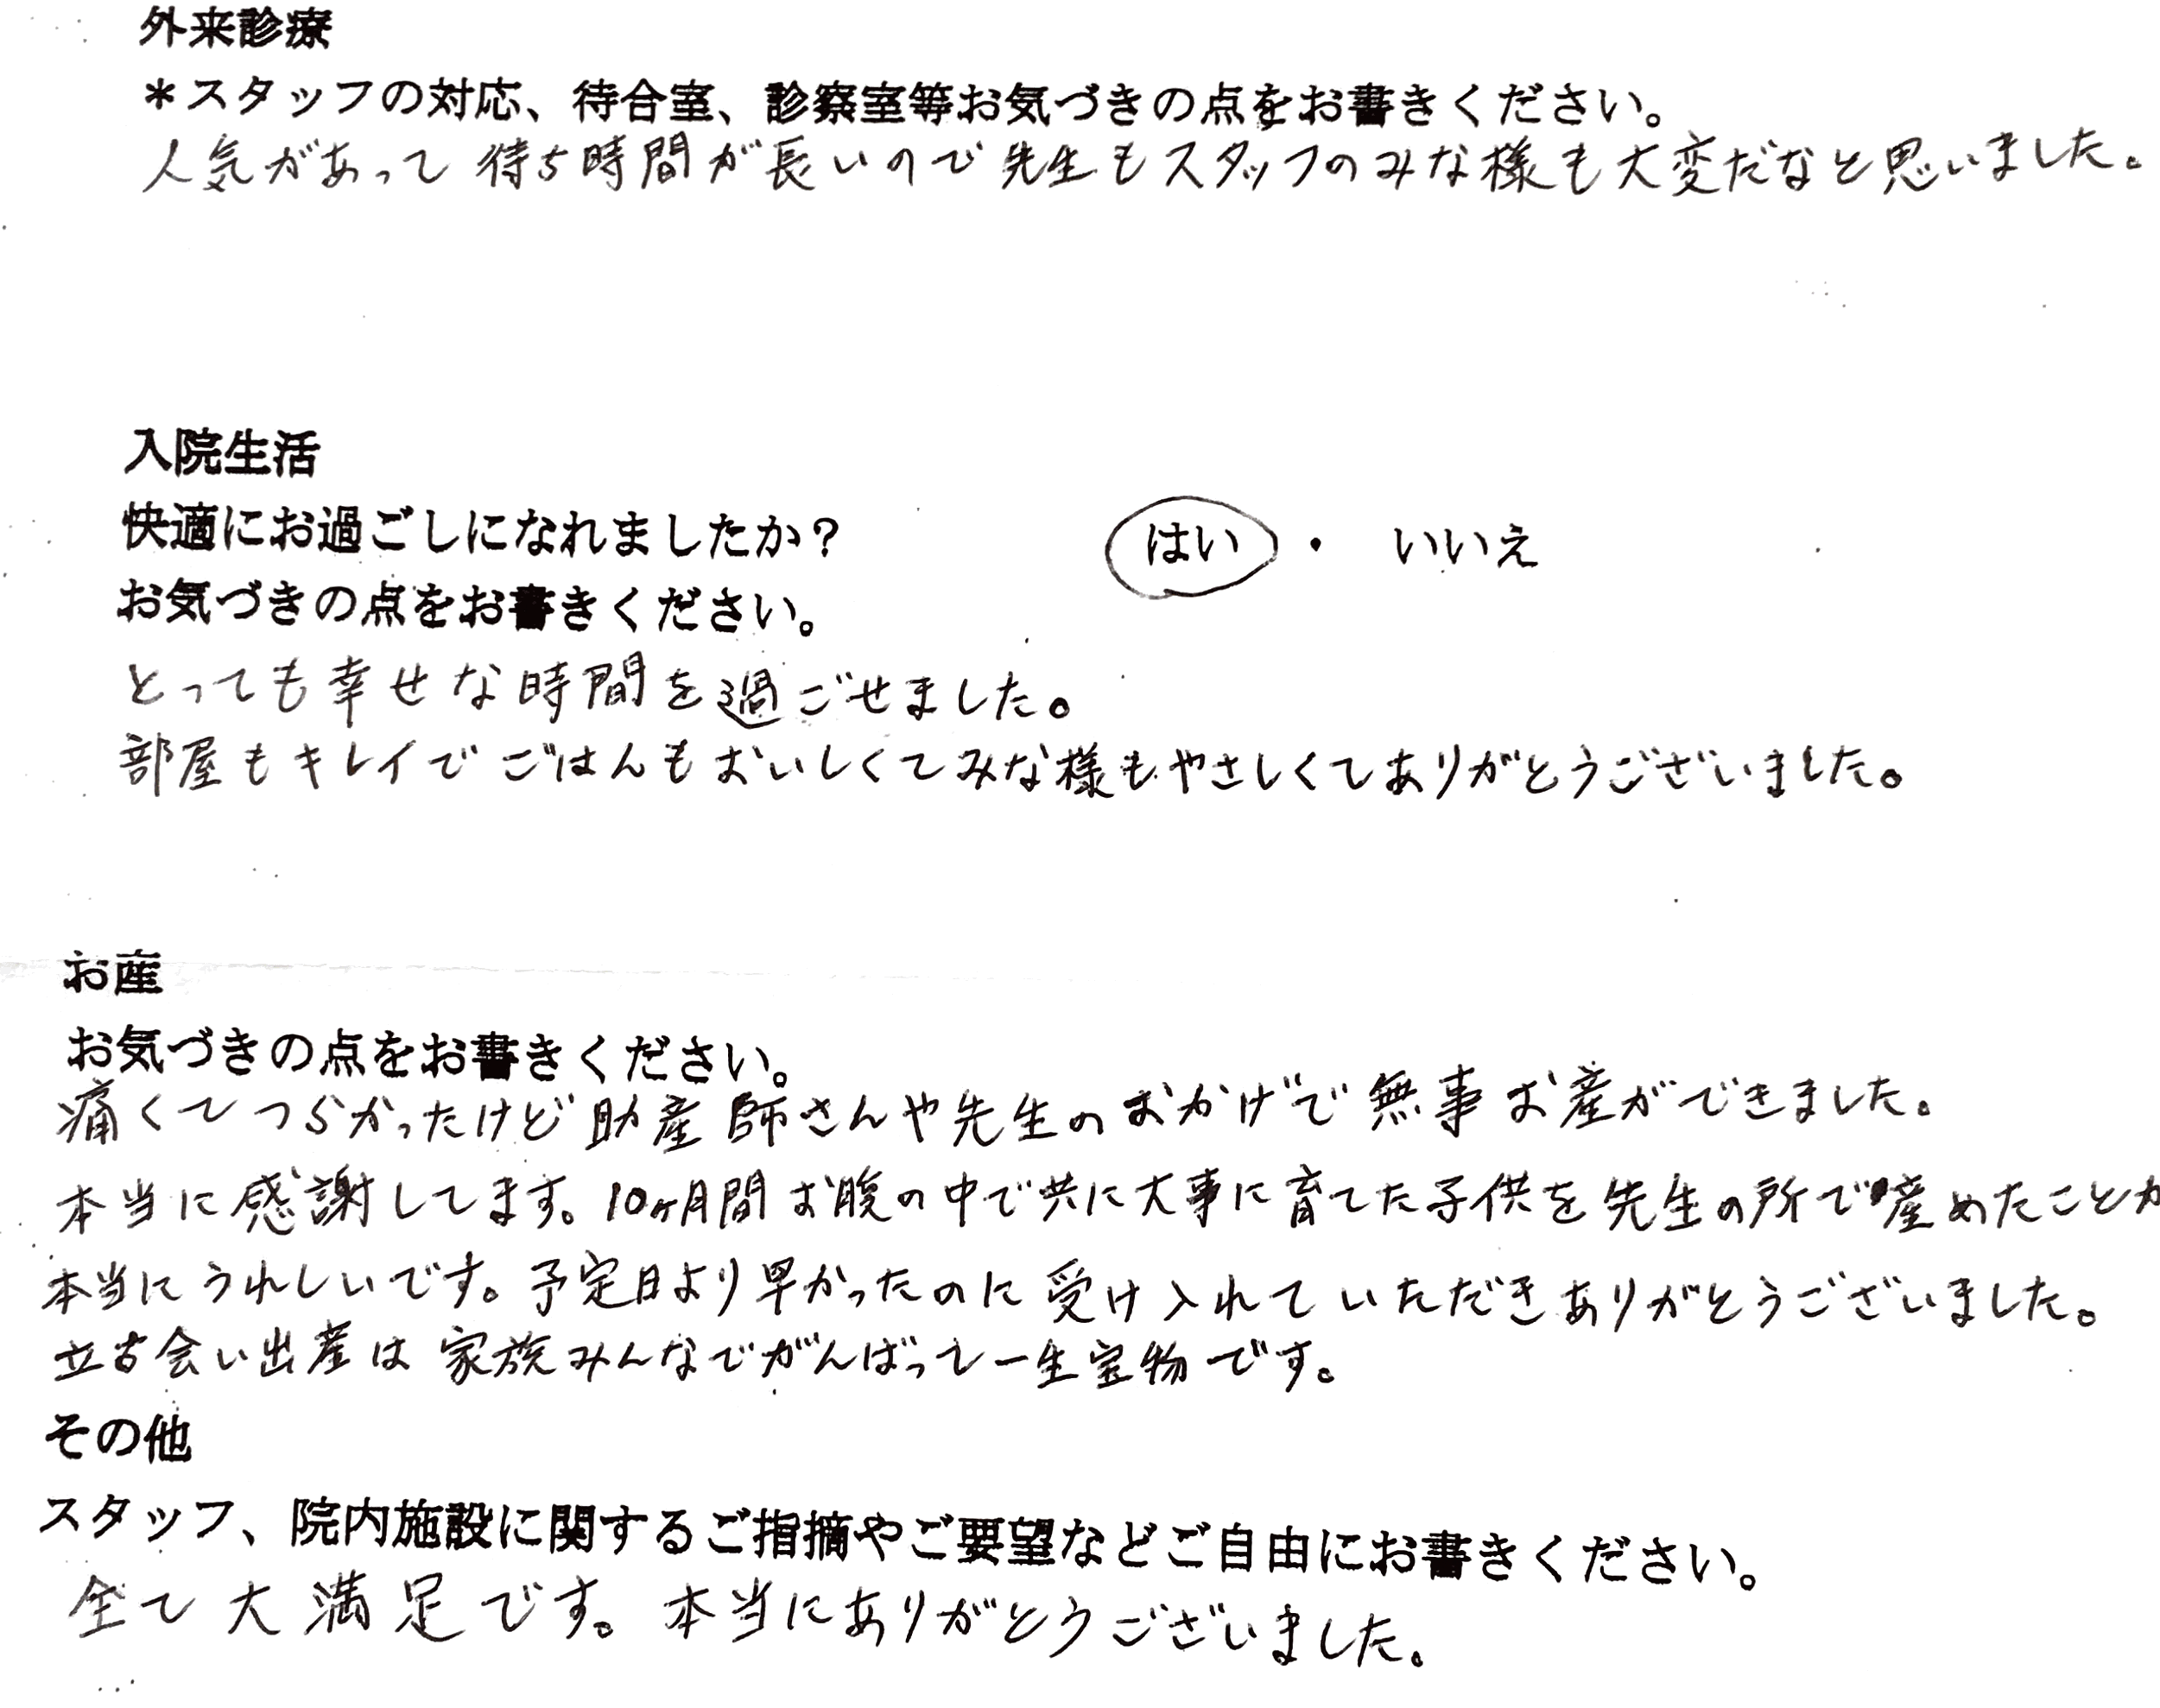 外来診療
*スタッフの対応、待合室、診察室等お気づきの点をお書きください。
人気があって待ち時間が長いので先生もスタッフのみな様も大変だなと思いました。
入院生活
快適にお過ごしになれましたか? はい ・ いいえ
お気づきの点をお書きください。
とっても幸せな時間を過ごせました。
部屋もキレイでごはんもおいしくてみな様もやさしくてありがとうございました。
お産
お気づきの点をお書きください。
痛くてつらかったけど助産師さんや先生のおかげで無事お産ができました。
本当に感謝してます。10ヶ月間お腹の中で共に大事に育てた子供を先生の所で産めたことが
本当にうれしいです。予定日より早かったのに受け入れていただきありがとうございました。
立ち会い出産は家族みんなでがんばって一生宝物です。
その他
スタッフ、院内施設に関するご指摘やご要望などご自由にお書きください。
全て大満足です。本当にありがとうございました。